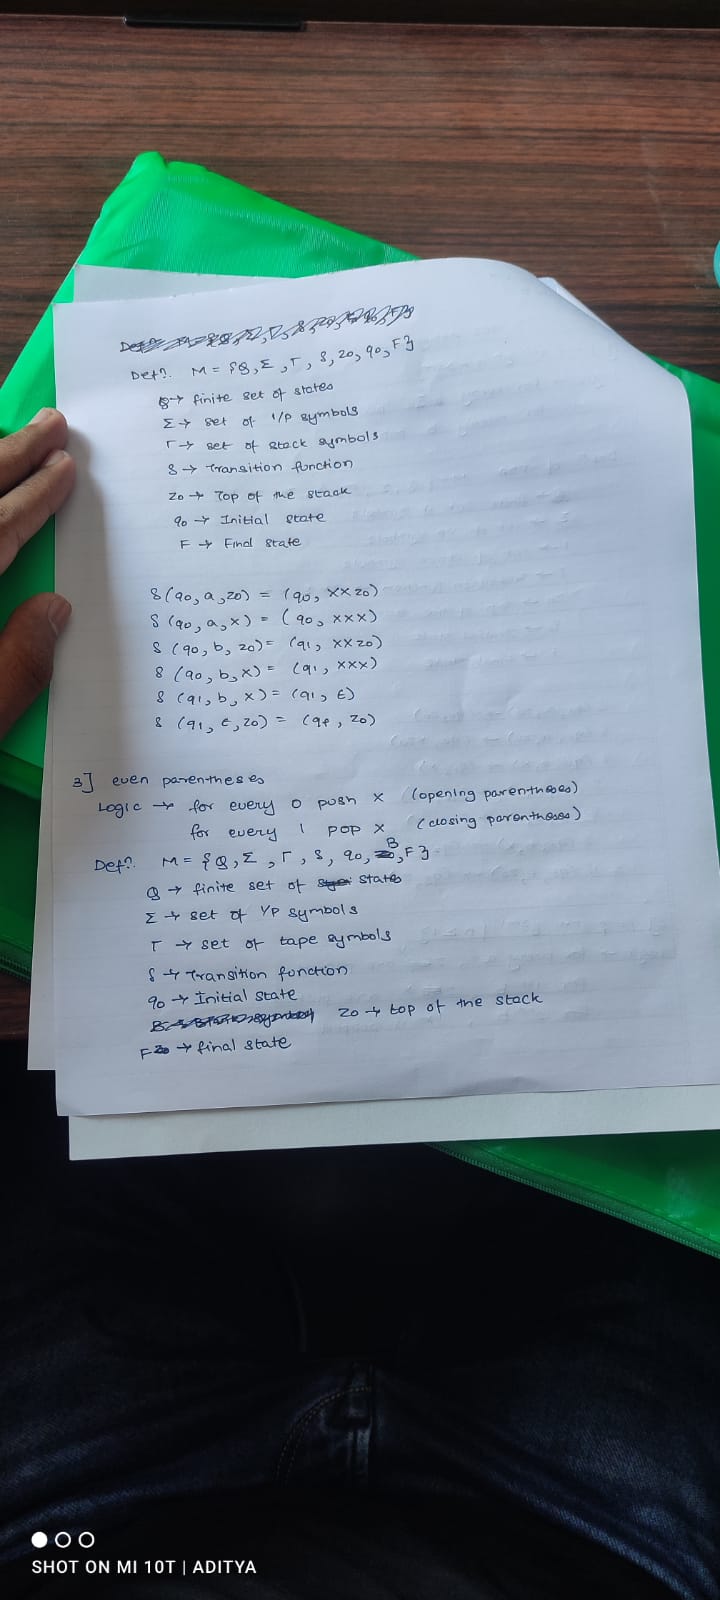 Defⁿ. M = {Q, Σ, Γ, δ, z0, q0, F}
Q → finite set of states
Σ → set of I/P symbols
Γ → set of stack symbols
δ → Transition function
z0 → Top of the stack
q0 → Initial state
F → Final state
δ(q0, a, z0) = (q0, XXz0)
δ(q0, a, x) = (q0, XXX)
δ(q0, b, z0) = (q1, XXz0)
δ(q0, b, x) = (q1, XXX)
δ(q1, b, x) = (q1, ε)
δ(q1, ε, z0) = (qf, z0)
3] even parentheses
Logic → for every 0 push X (opening parentheses)
for every 1 pop X (closing parentheses)
Defⁿ. M = {Q, Σ, Γ, δ, q0, B, F}
Q → finite set of states
Σ → set of I/P symbols
Γ → set of tape symbols
δ → Transition function
q0 → Initial state
z0 → top of the stack
F → final state
SHOT ON MI 10T | ADITYA